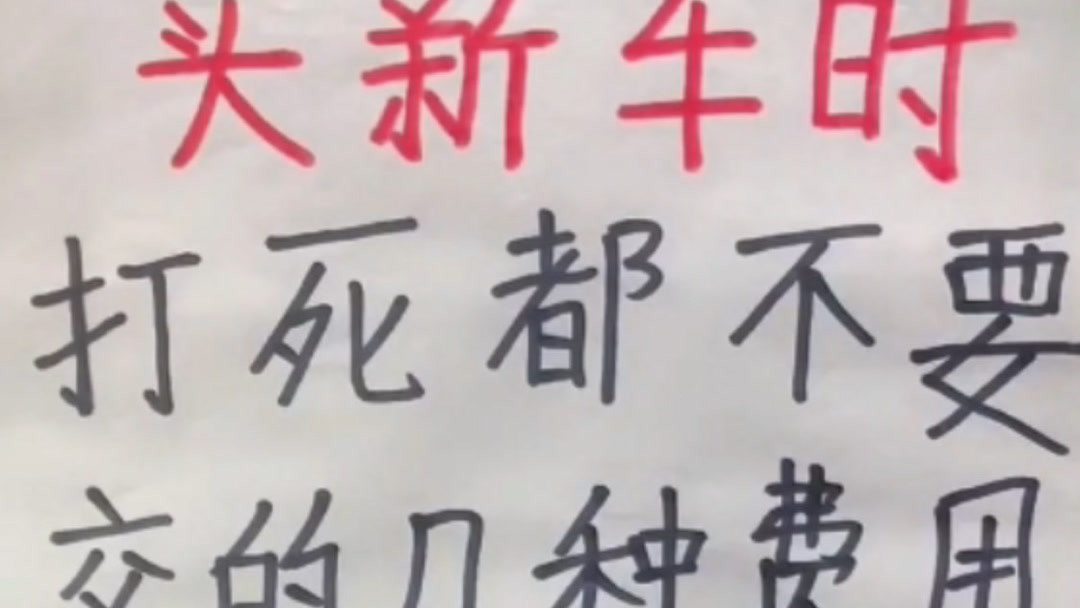 买新车时
打死都不要
交的几种费用